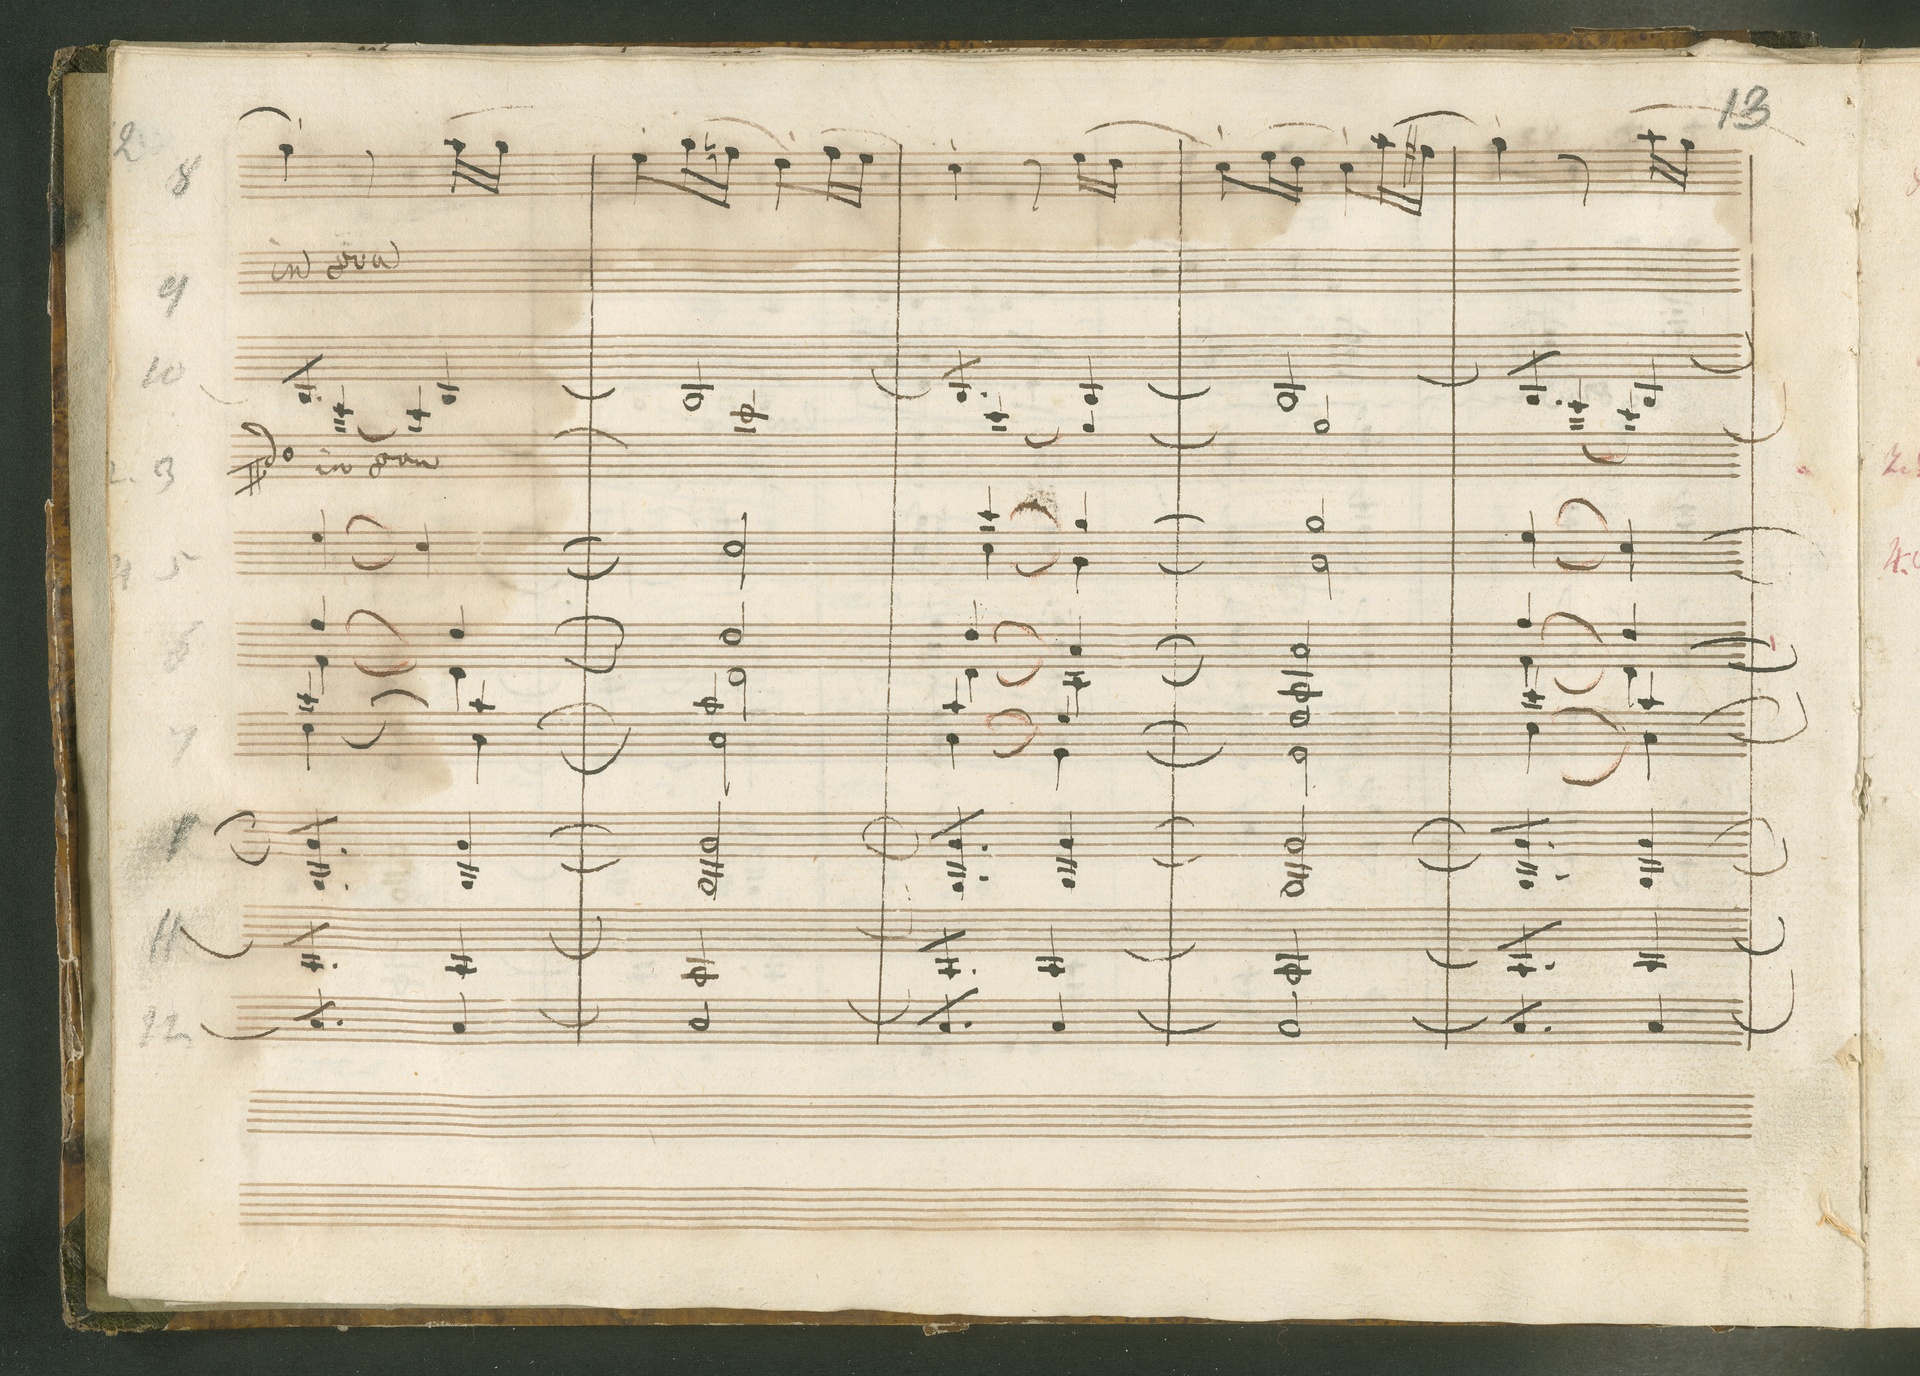 13
2.
8
in 8va
9
10
2. 3
in 8va
4 5
6
7
1
11
12